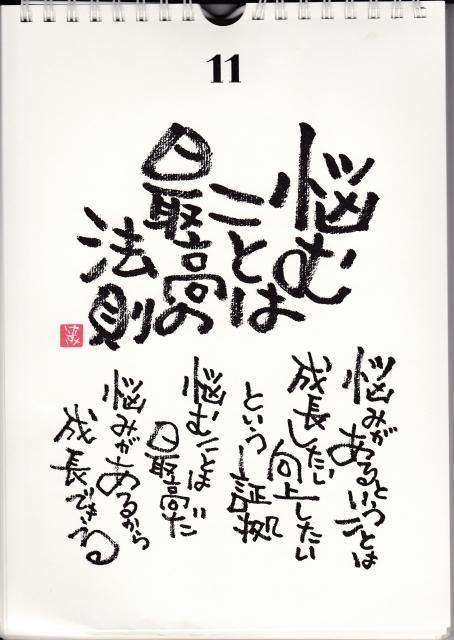 11
悩む
ことは
最高の
法則
悩みが
あるということは
成長したい
向上したい
という証拠
悩むことは
最高だ
悩みがあるから
成長できる